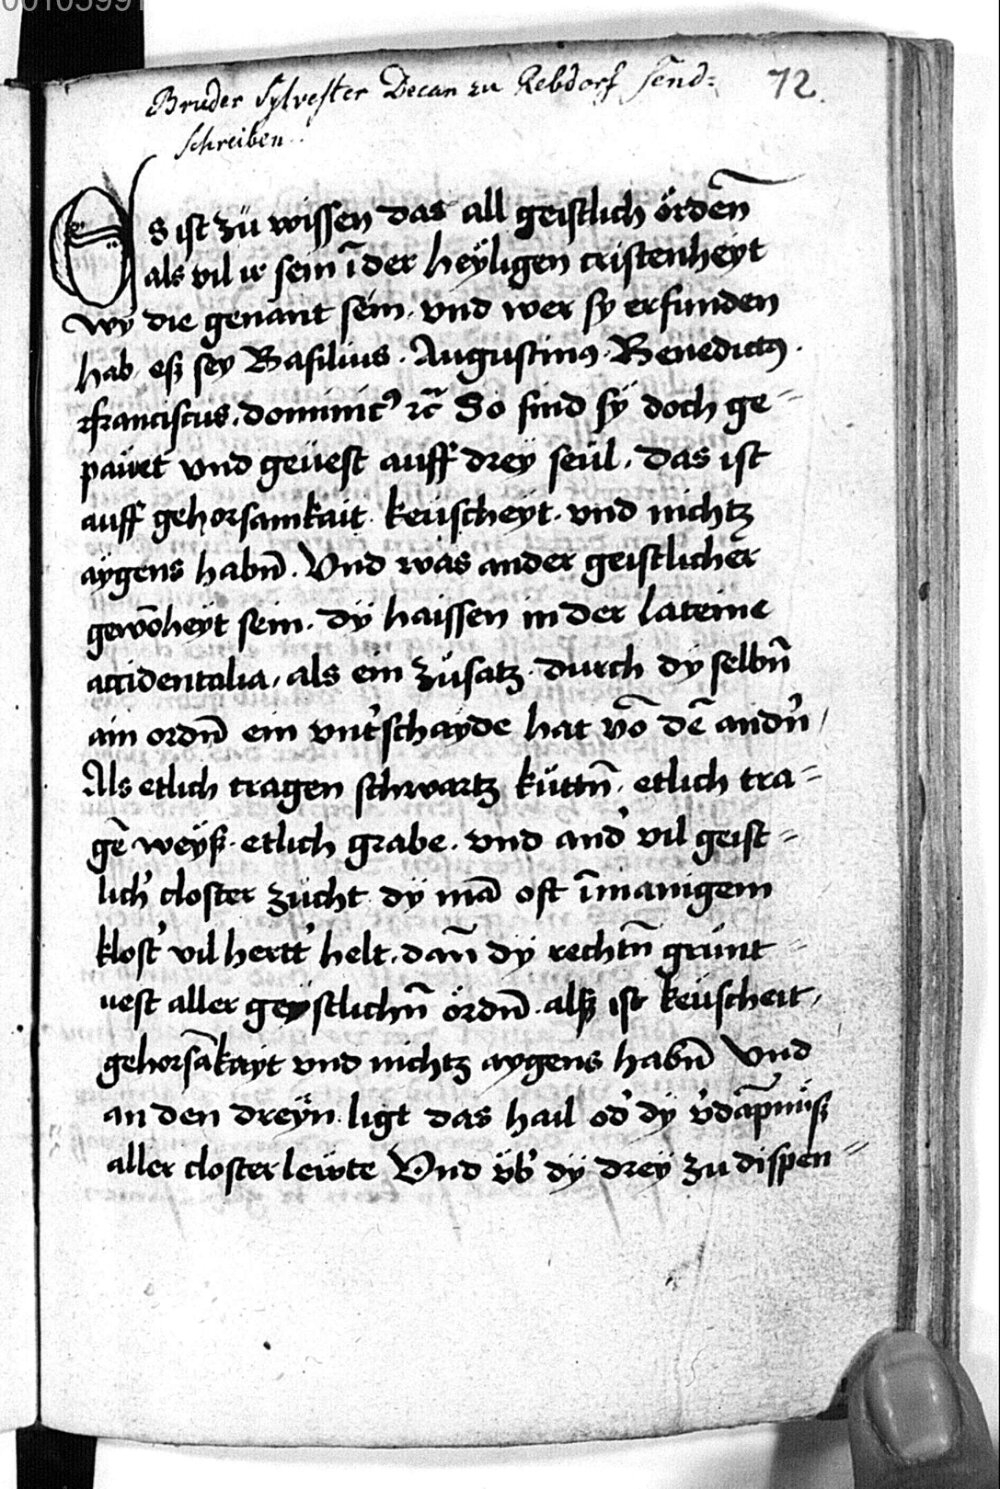 Bruder Sylvester Decan zu Rebdorf Send=
schreiben.
72.
Es ist zü wissen das all geistlichördeñ
als vil ir sein ī der heÿligen cristenheÿt
wÿ die genant sein. vnd wer sy erfunden
hab. eß seÿ Basilius. Augustinꝰ. Benedictꝰ.
franciscus. dominicꝰ ⁊c̄ So sind sÿ doch ge=
pawet vnd geüest auff dreÿ seül. das ist
auff gehorsamkait. keüscheÿt. vnd nichtz
aygens habn̄. Vnd was ander geistlicher
gewōheÿt sein. dÿ haissen in der lateine
accidentalia, als ein züsatz. durch dÿ selbn̄
ain ordn̄ ein vnt᾽schayde hat vō dē andn᾽
Als etlich tragen schwartz küttn̄. etlich tra=
gē weÿß. etlich grabe. vnd and᾽ vil geist=
lich᾽ closter zücht dÿ mā oft ī manigem
klost᾽ vil hertt᾽ helt. dañ dÿ rechtn̄ grunt
uest aller geÿstlichn̄ ördn̄. alß ist keüscheit,
gehorsākayt vnd nichtz aygens habn̄ Vnd
an den dreÿn ligt das hail od᾽ dÿ v᾽dāpnüß
aller closterlewte Vnd üb᾽ dÿ dreÿ zu dispen=